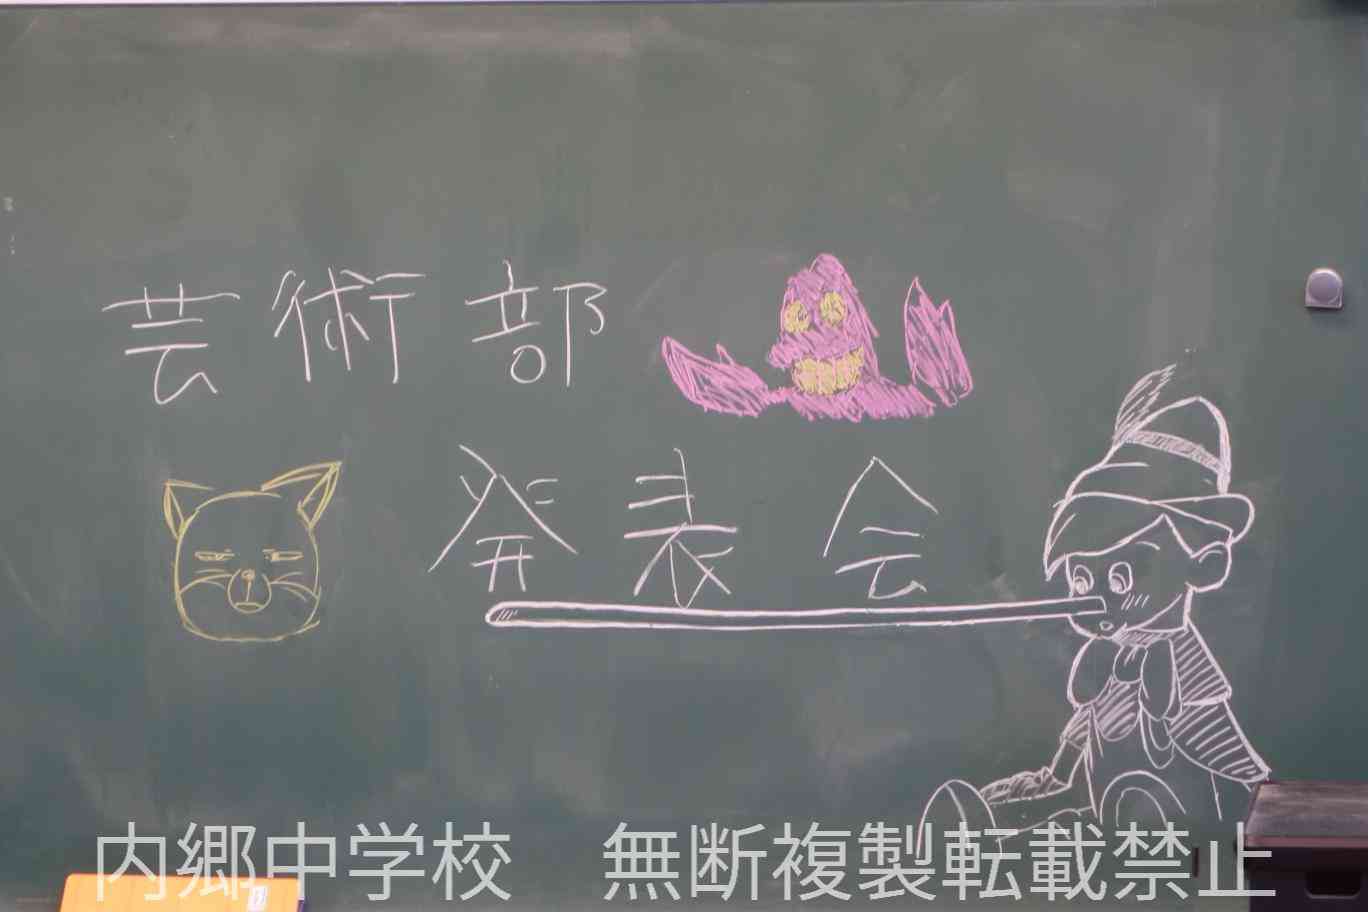 芸術部
発表会
内郷中学校　無断複製転載禁止